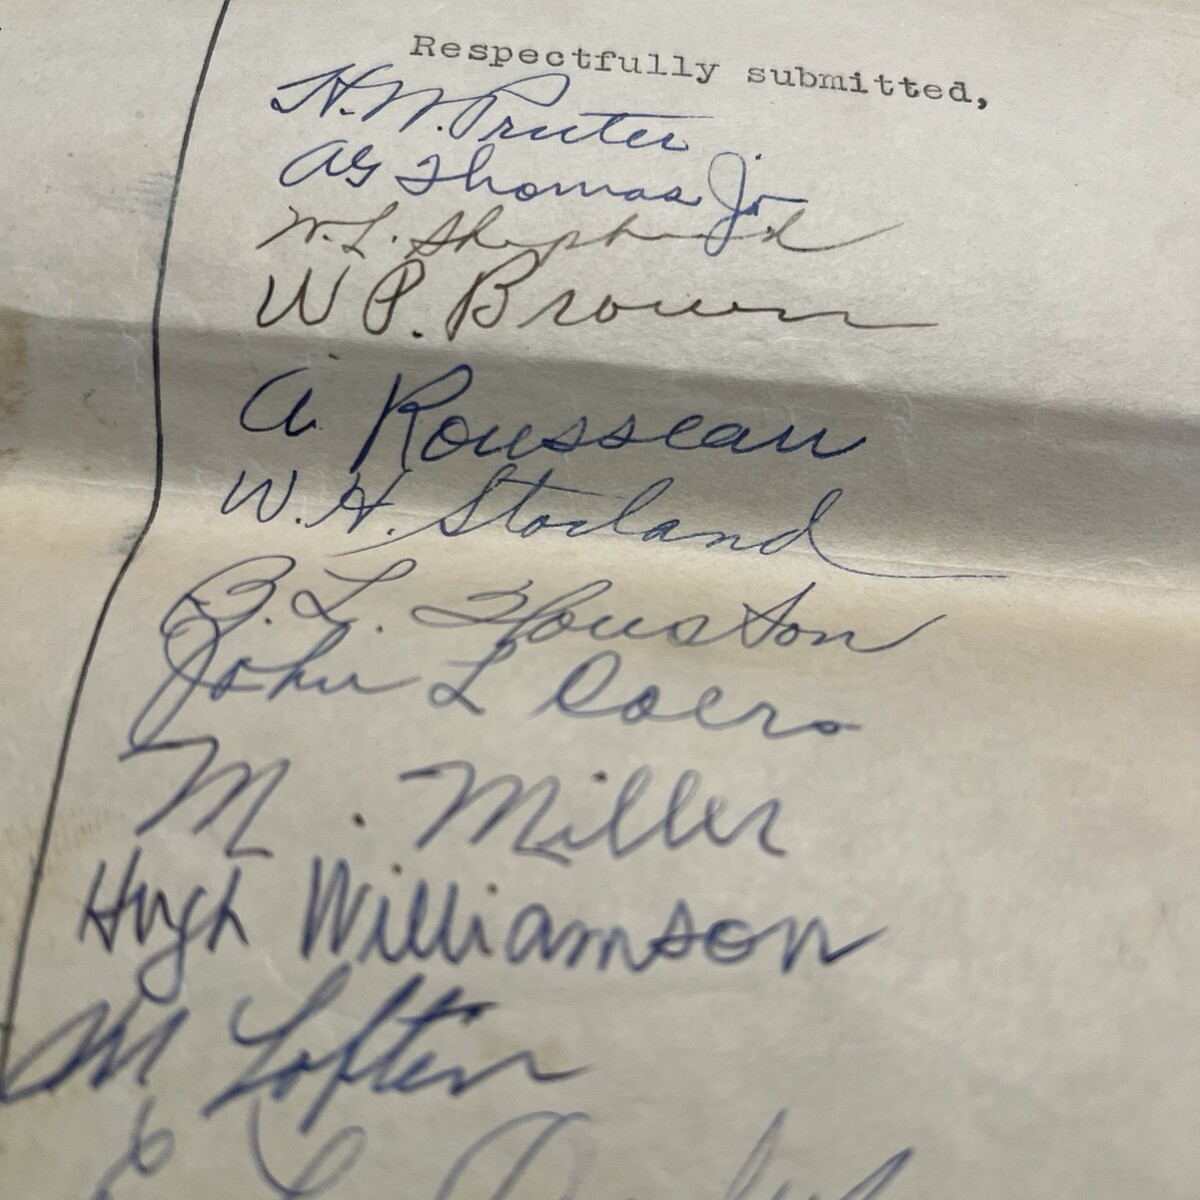 Respectfully submitted,
H. W. Pruter
AG Thomas Jr.
W. L. Shepherd
W P. Brown
A. Rousseau
W. H. Storland
B. L. Houston
John L
M. Miller
Hugh Williamson
M Loftin